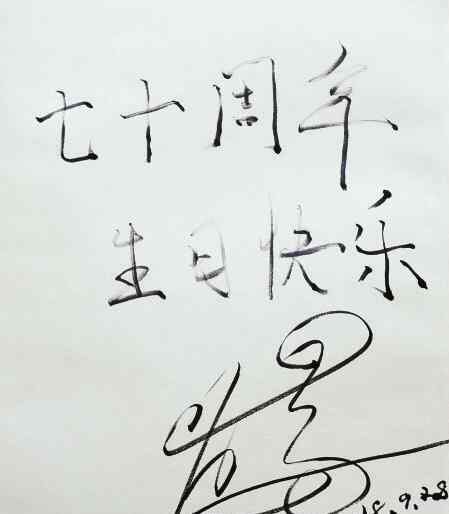 七十周年
生日快乐
18.9.28